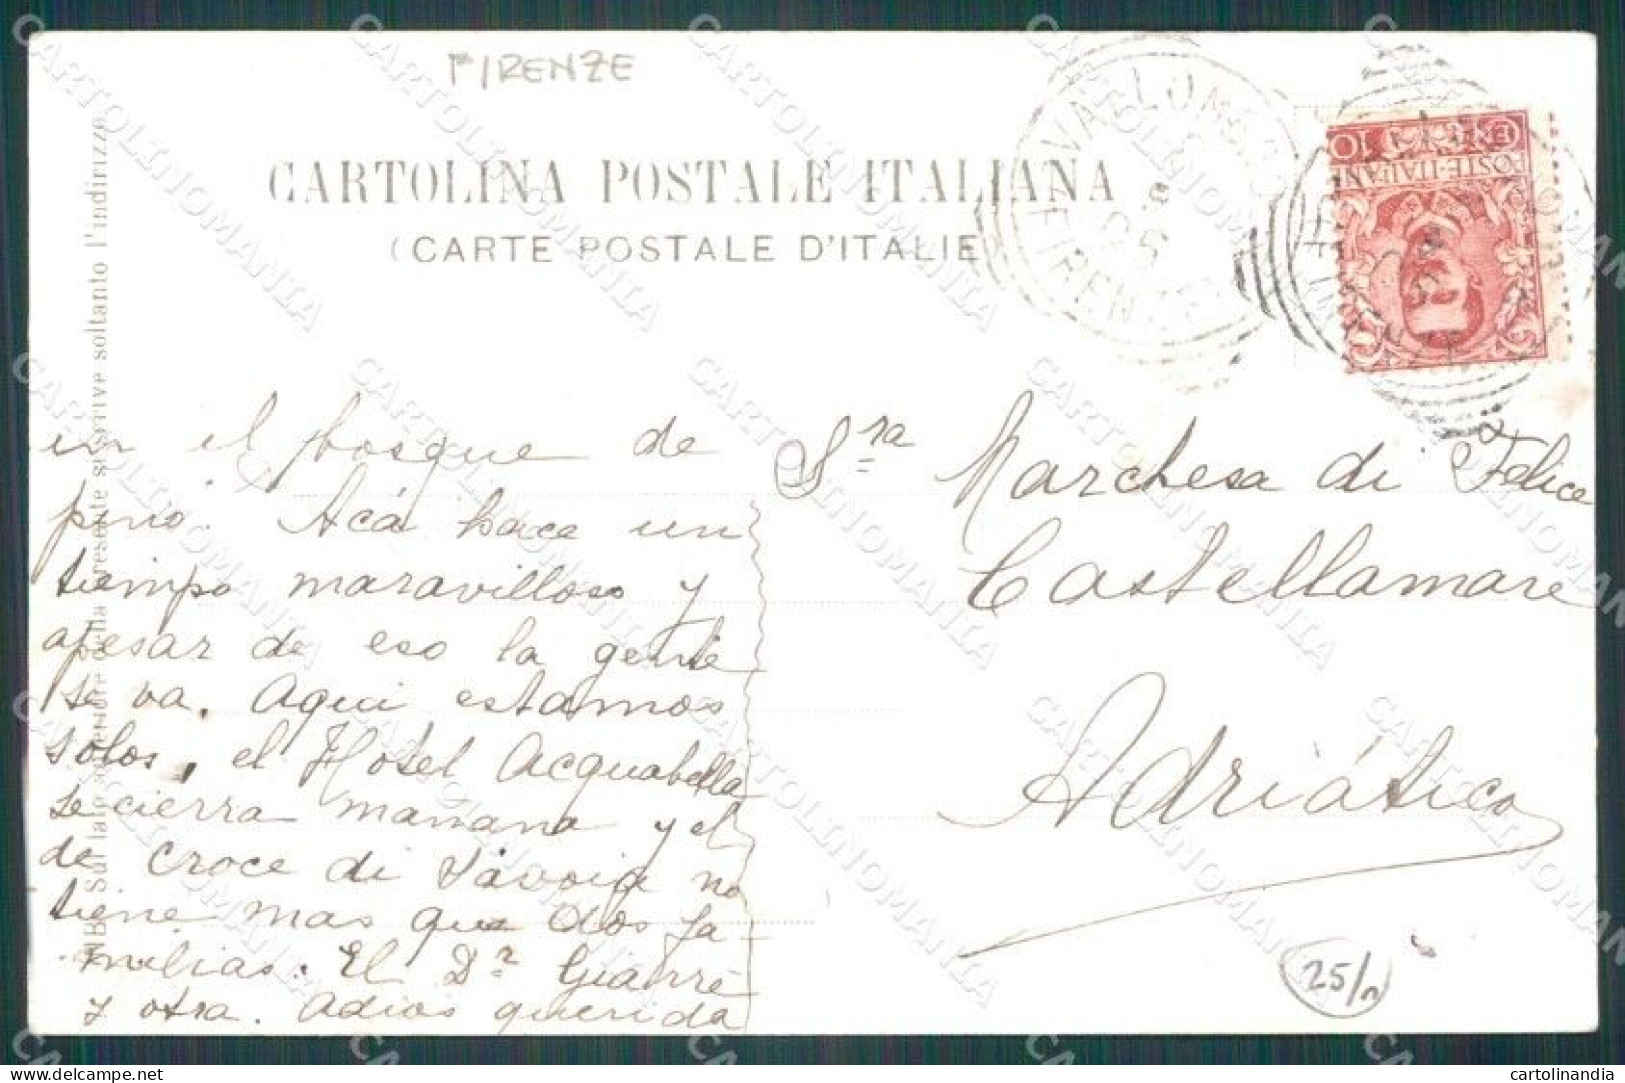 FIRENZE
CARTOLINA POSTALE ITALIANA
(CARTE POSTALE D'ITALIE
NB. Sul lato anteriore della presente si scrive soltanto l'indirizzo
FIRENZE
05
POSTE ITALIANE
CENT. 10
en el bosque de
pino. Acá hace un
tiempo maravilloso y
apesar de eso la gente
se va. Aqui estamos
solos, el Hotel Acquabella
se cierra mañana y el
de Croce di Savoia no
tiene mas que dos fa-
milias. El Dr. Giarrè
y otra. Adios querida
Sra Marchesa di Felice
Castellamare
Adriático
25/n
CARTOLINOMANIA
delcampe.net
cartolinandia